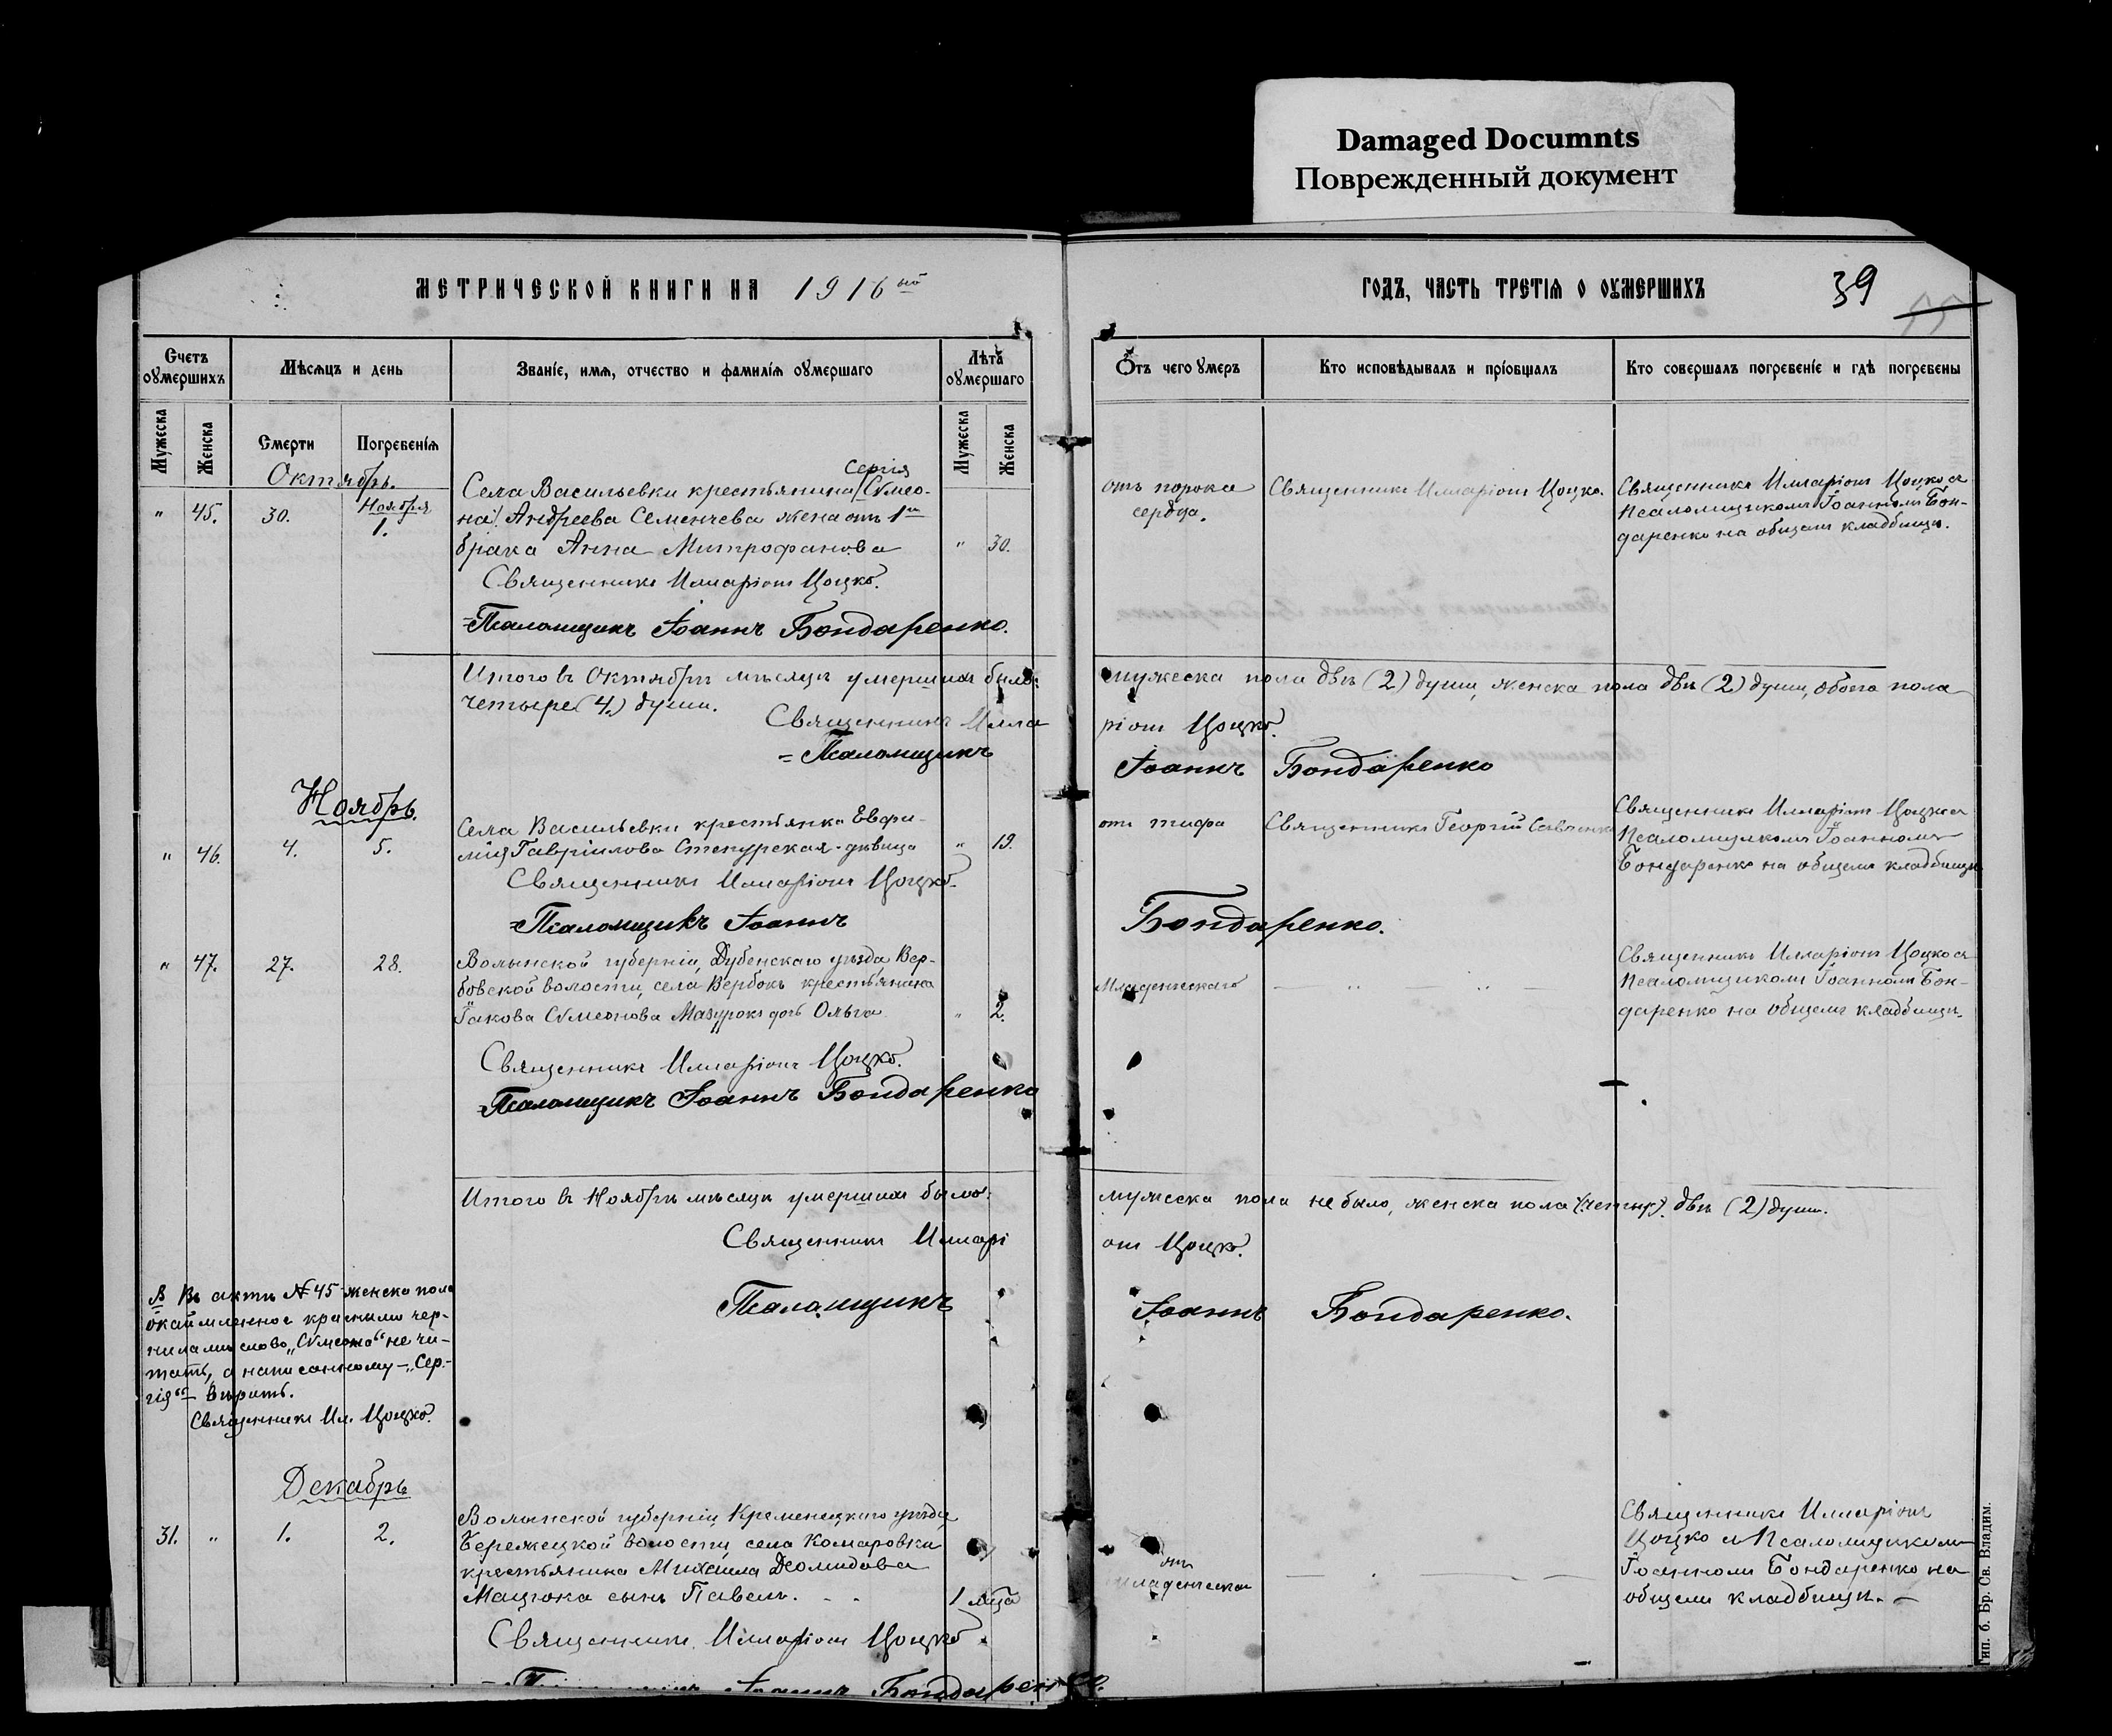 Damaged Documnts
Поврежденный документ
МЕТРИЧЕСКОЙ КНИГИ НА 1916 ый
ГОДЪ, ЧАСТЬ ТРЕТІЯ О ОУМЕРШИХЪ
39
Счетъ оумершихъ
Мѣсяцъ и день
Званіе, имя, отчество и фамилія оумершаго
Лѣта оумершаго
Отъ чего умеръ
Кто исповѣдывалъ и пріобщалъ
Кто совершалъ погребеніе и гдѣ погребены
Мужеска
Женска
Смерти
Погребенія
Мужеска
Женска
Октябрь.
" 45. 30. Ноября 1.
Сергія
Села Васильевки крестьянина (Сѵмео-
на) Андреева Семенчева жена отъ 1го
брака Анна Митрофанова
" 30.
Священникъ Илларіонъ Цоцко.
Псаломщикъ Іоаннъ Бондаренко.
отъ порока
сердца.
Священникъ Илларіонъ Цоцко.
Священникъ Илларіонъ Цоцко съ
Псаломщикомъ Іоанномъ Бон-
даренко на общемъ кладбищѣ.
Итого въ Октябрѣ мѣсяцѣ умершихъ было: мужеска пола двѣ (2) души, женска пола двѣ (2) души, обоего пола
четыре (4) души.
Священникъ Илларіонъ Цоцко.
Псаломщикъ Іоаннъ Бондаренко
Ноябрь.
" 46. 4. 5.
Села Васильевки крестьянка Евфи-
мія Гавріилова Стенурская - дѣвица
" 19.
Священникъ Илларіонъ Цоцко.
Псаломщикъ Іоаннъ Бондаренко.
отъ тифа
Священникъ Георгій Савченко
Священникъ Илларіонъ Цоцко съ
Псаломщикомъ Іоанномъ
Бондаренко на общемъ кладбищѣ
" 47. 27. 28.
Волынской губерніи, Дубенскаго уѣзда, Вер-
бовской волости, села Вербокъ крестьянина
Іакова Сѵмеонова Мазурокъ дочь Ольга
" 2.
Священникъ Илларіонъ Цоцко.
Псаломщикъ Іоаннъ Бондаренко
Младенческаго
Священникъ Илларіонъ Цоцко съ
Псаломщикомъ Іоанномъ Бон-
даренко на общемъ кладбищѣ.
Итого въ Ноябрѣ мѣсяцѣ умершихъ было: мужеска пола не было, женска пола (четыр). двѣ (2) души.
Священникъ Илларіонъ Цоцко.
Псаломщикъ Іоаннъ Бондаренко.
Въ актѣ № 45 женска пола
окаймленное красными чер-
нилами слово „Сѵмеона“ не чи-
тать, а написанному – „Сер-
гія“ – вѣрить.
Священникъ Ил. Цоцко.
Декабрь
31. " 1. 2.
Волынской губерніи Кременецкаго уѣзда
Бережецкой волости, села Комаровки
крестьянина Михаила Діомидова
Мацюка сынъ Павелъ.
1 м-ца
Священникъ Илларіонъ Цоцко.
Бондаренко.
отъ
младенческой
Священникъ Илларіонъ
Цоцко съ Псаломщикомъ
Іоанномъ Бондаренко на
общемъ кладбищѣ.
Тип. б. Бр. Св. Владим.